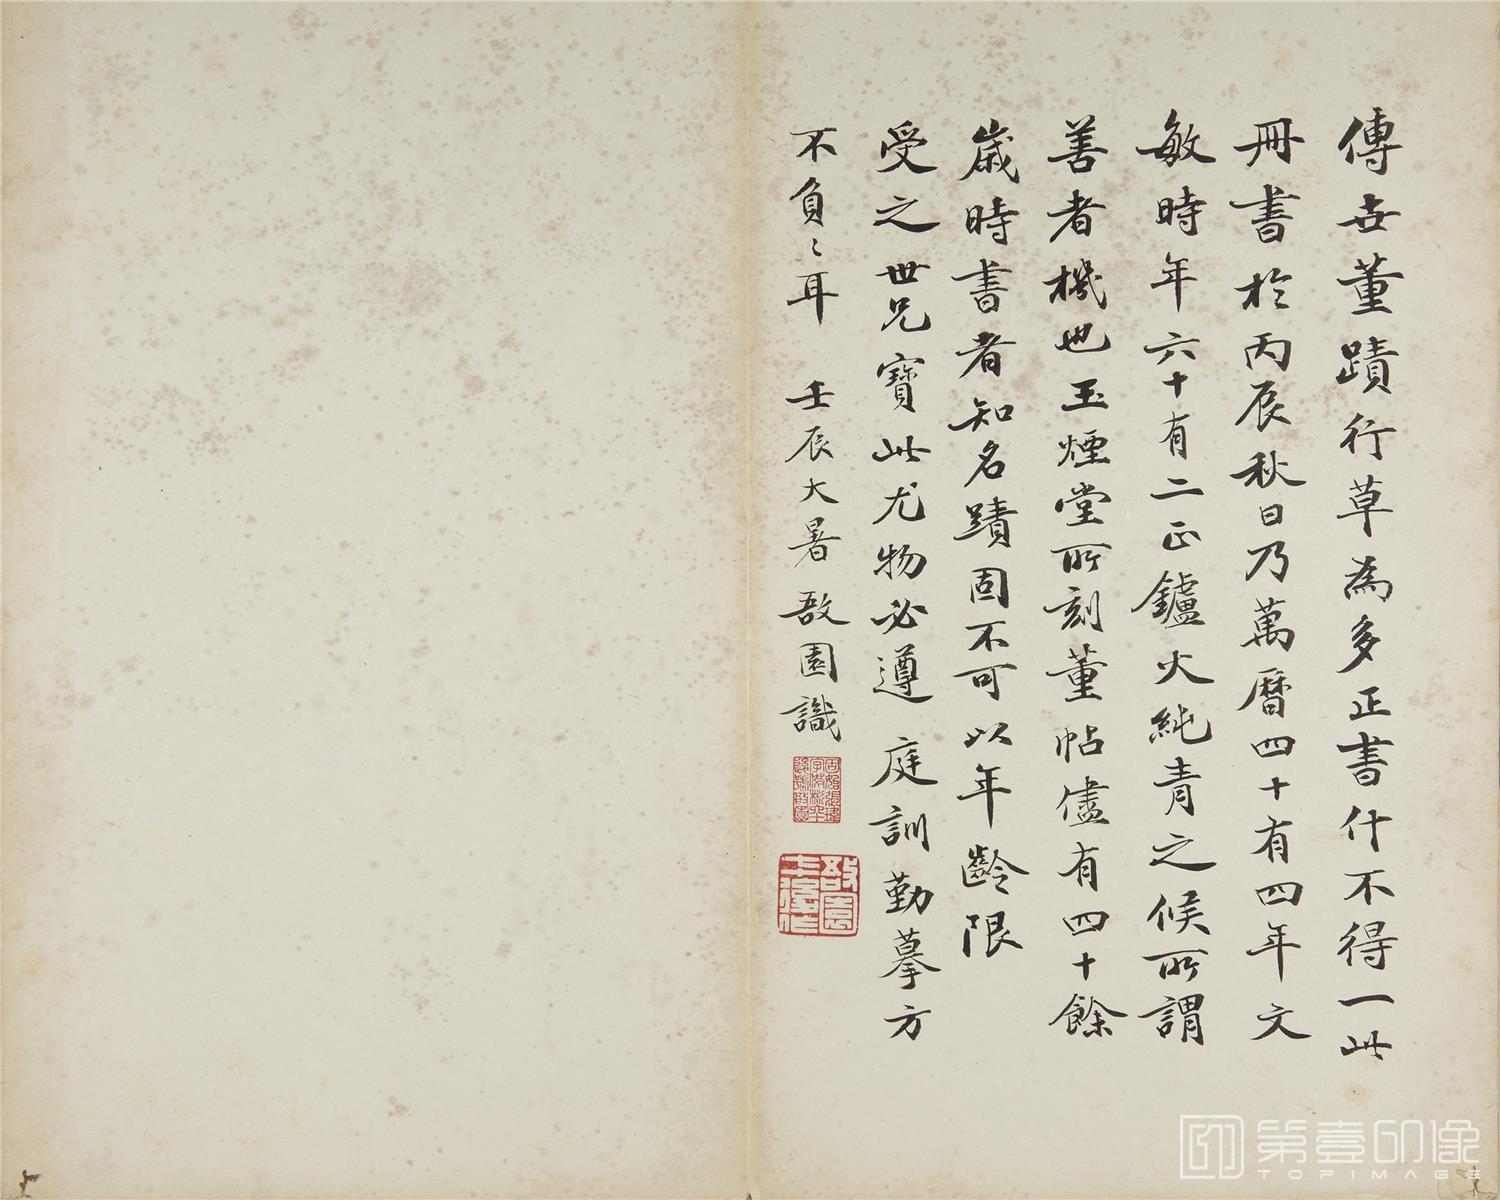 傳世董蹟行草為多正書什不得一此
冊書於丙辰秋日乃萬曆四十有四年文
敏時年六十有二正鑪火純青之候所謂
善者機也玉煙堂所刻董帖儘有四十餘
歲時書者知名蹟固不可以年齡限
受之世兄寶此尤物必遵庭訓勤摹方
不負負耳 壬辰大暑敔園識
第壹印像
TOPIMAGE